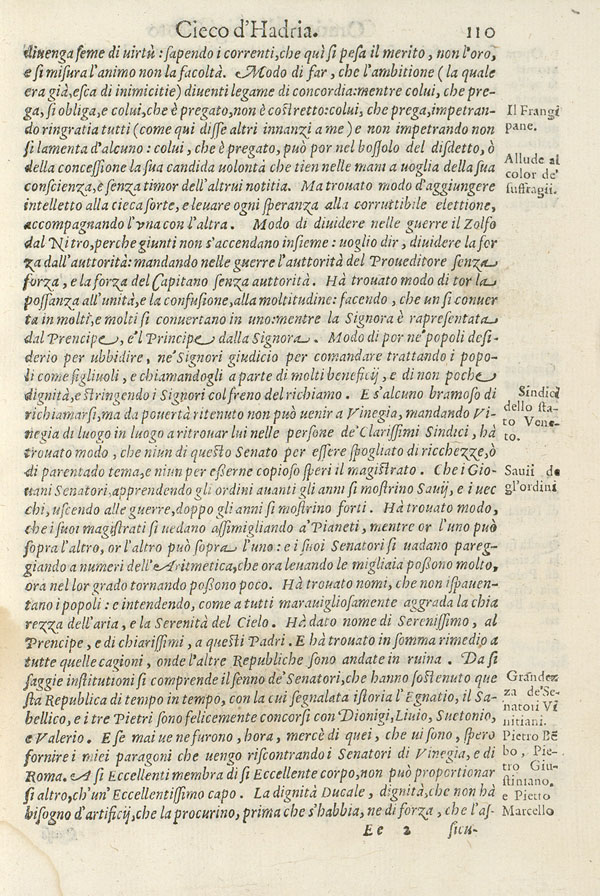 Cieco d'Hadria. 110
diuenga seme di uirtù: sapendo i correnti, che quì si pesa il merito, non l'oro,
e si misura l'animo non la facoltà. Modo di far, che l'ambitione (la quale
era già, esca di inimicitie) diuenti legame di concordia: mentre colui, che pre-
ga, si obliga, e colui, che è pregato, non è costretto: colui, che prega, impetran-
do ringratia tutti (come qui disse altri innanzi a me) e non impetrando non
si lamenta d'alcuno: colui, che è pregato, può por nel bossolo del disdetto, ò
della concessione la sua candida uolontà che tien nelle mani a uoglia della sua
conscienza, è senza timor dell'altrui notitia. Ma trouato modo d'aggiungere
intelletto alla cieca sorte, e leuare ogni speranza alla corruttibile elettione,
accompagnando l'vna con l'altra. Modo di diuidere nelle guerre il Zolfo
dal Nitro, perche giunti non s'accendano insieme: uoglio dir, diuidere la for
za dall'auttorità: mandando nelle guerre l'auttorità del Proueditore senza
forza, e la forza del Capitano senza auttorità. Hà trouato modo di tor la
possanza all'unità, e la confusione, alla moltitudine: facendo, che un si conuer
ta in molti, e molti si conuertano in uno: mentre la Signora è rapresentata
dal Prencipe, e'l Principe dalla Signora. Modo di por ne' popoli desi-
derio per ubbidire, ne' Signori giudicio per comandare trattando i popo-
li come figliuoli, e chiamandogli a parte di molti beneficij, e di non poche
dignità, e stringendo i Signori col freno del richiamo. E s'alcuno bramoso di
richiamarsi, ma da pouertà ritenuto non può uenir a Vinegia, mandando Vi-
negia di luogo in luogo a ritrouar lui nelle persone de' Clarissimi Sindici, hà
trouato modo, che niun di questo Senato per essere spogliato di ricchezze, ò
di parentado tema, e niun per eßerne copioso speri il magistrato. Che i Gio-
uani Senatori, apprendendo gli ordini auanti gli anni si mostrino Sauij, e i uec
chi, uscendo alle guerre, doppo gli anni si mostrino forti. Hà trouato modo,
che i suoi magistrati si uedano assimigliando a' Pianeti, mentre or l'uno può
sopra l'altro, or l'altro può sopra l'uno: e i suoi Senatori si uadano pareg-
giando a numeri dell'Aritmetica, che ora leuando le migliaia poßono molto,
ora nel lor grado tornando poßono poco. Hà trouato nomi, che non ispauen-
tano i popoli: e intendendo, come a tutti marauigliosamente aggrada la chia
rezza dell'aria, e la Serenità del Cielo. Hà dato nome di Serenissimo, al
Prencipe, e di chiarissimi, a questi Padri. E hà trouato in somma rimedio a
tutte quelle cagioni, onde l'altre Republiche sono andate in ruina. Da si
saggie institutioni si comprende il senno de' Senatori, che hanno sostenuto que
sta Republica di tempo in tempo, con la cui segnalata istoria l'Egnatio, il Sa-
bellico, e i tre Pietri sono felicemente concorsi con Dionigi, Liuio, Suetonio,
e Valerio. E se mai ue ne furono, hora, mercè di quei, che ui sono, spero
fornire i miei paragoni che uengo riscontrando i Senatori di Vinegia, e di
Roma. A si Eccellenti membra di si Eccellente corpo, non può proportionar
si altro, ch'un' Eccellentissimo capo. La dignità Ducale, dignità, che non hà
bisogno d'artificij, che la procurino, prima che s'habbia, ne di forza, che l'as-
Ee 2 sicu-
Il Frangi
pane.
Allude al
color de'
suffragii.
Sindici
dello sta-
to Vene-
to.
Sauii de
gl'ordini
Grãdez
za de' Se-
natori Vi
nitiani.
Pietro Bẽ
bo, Pie-
tro Giu-
stiniano.
e Pietro
Marcello